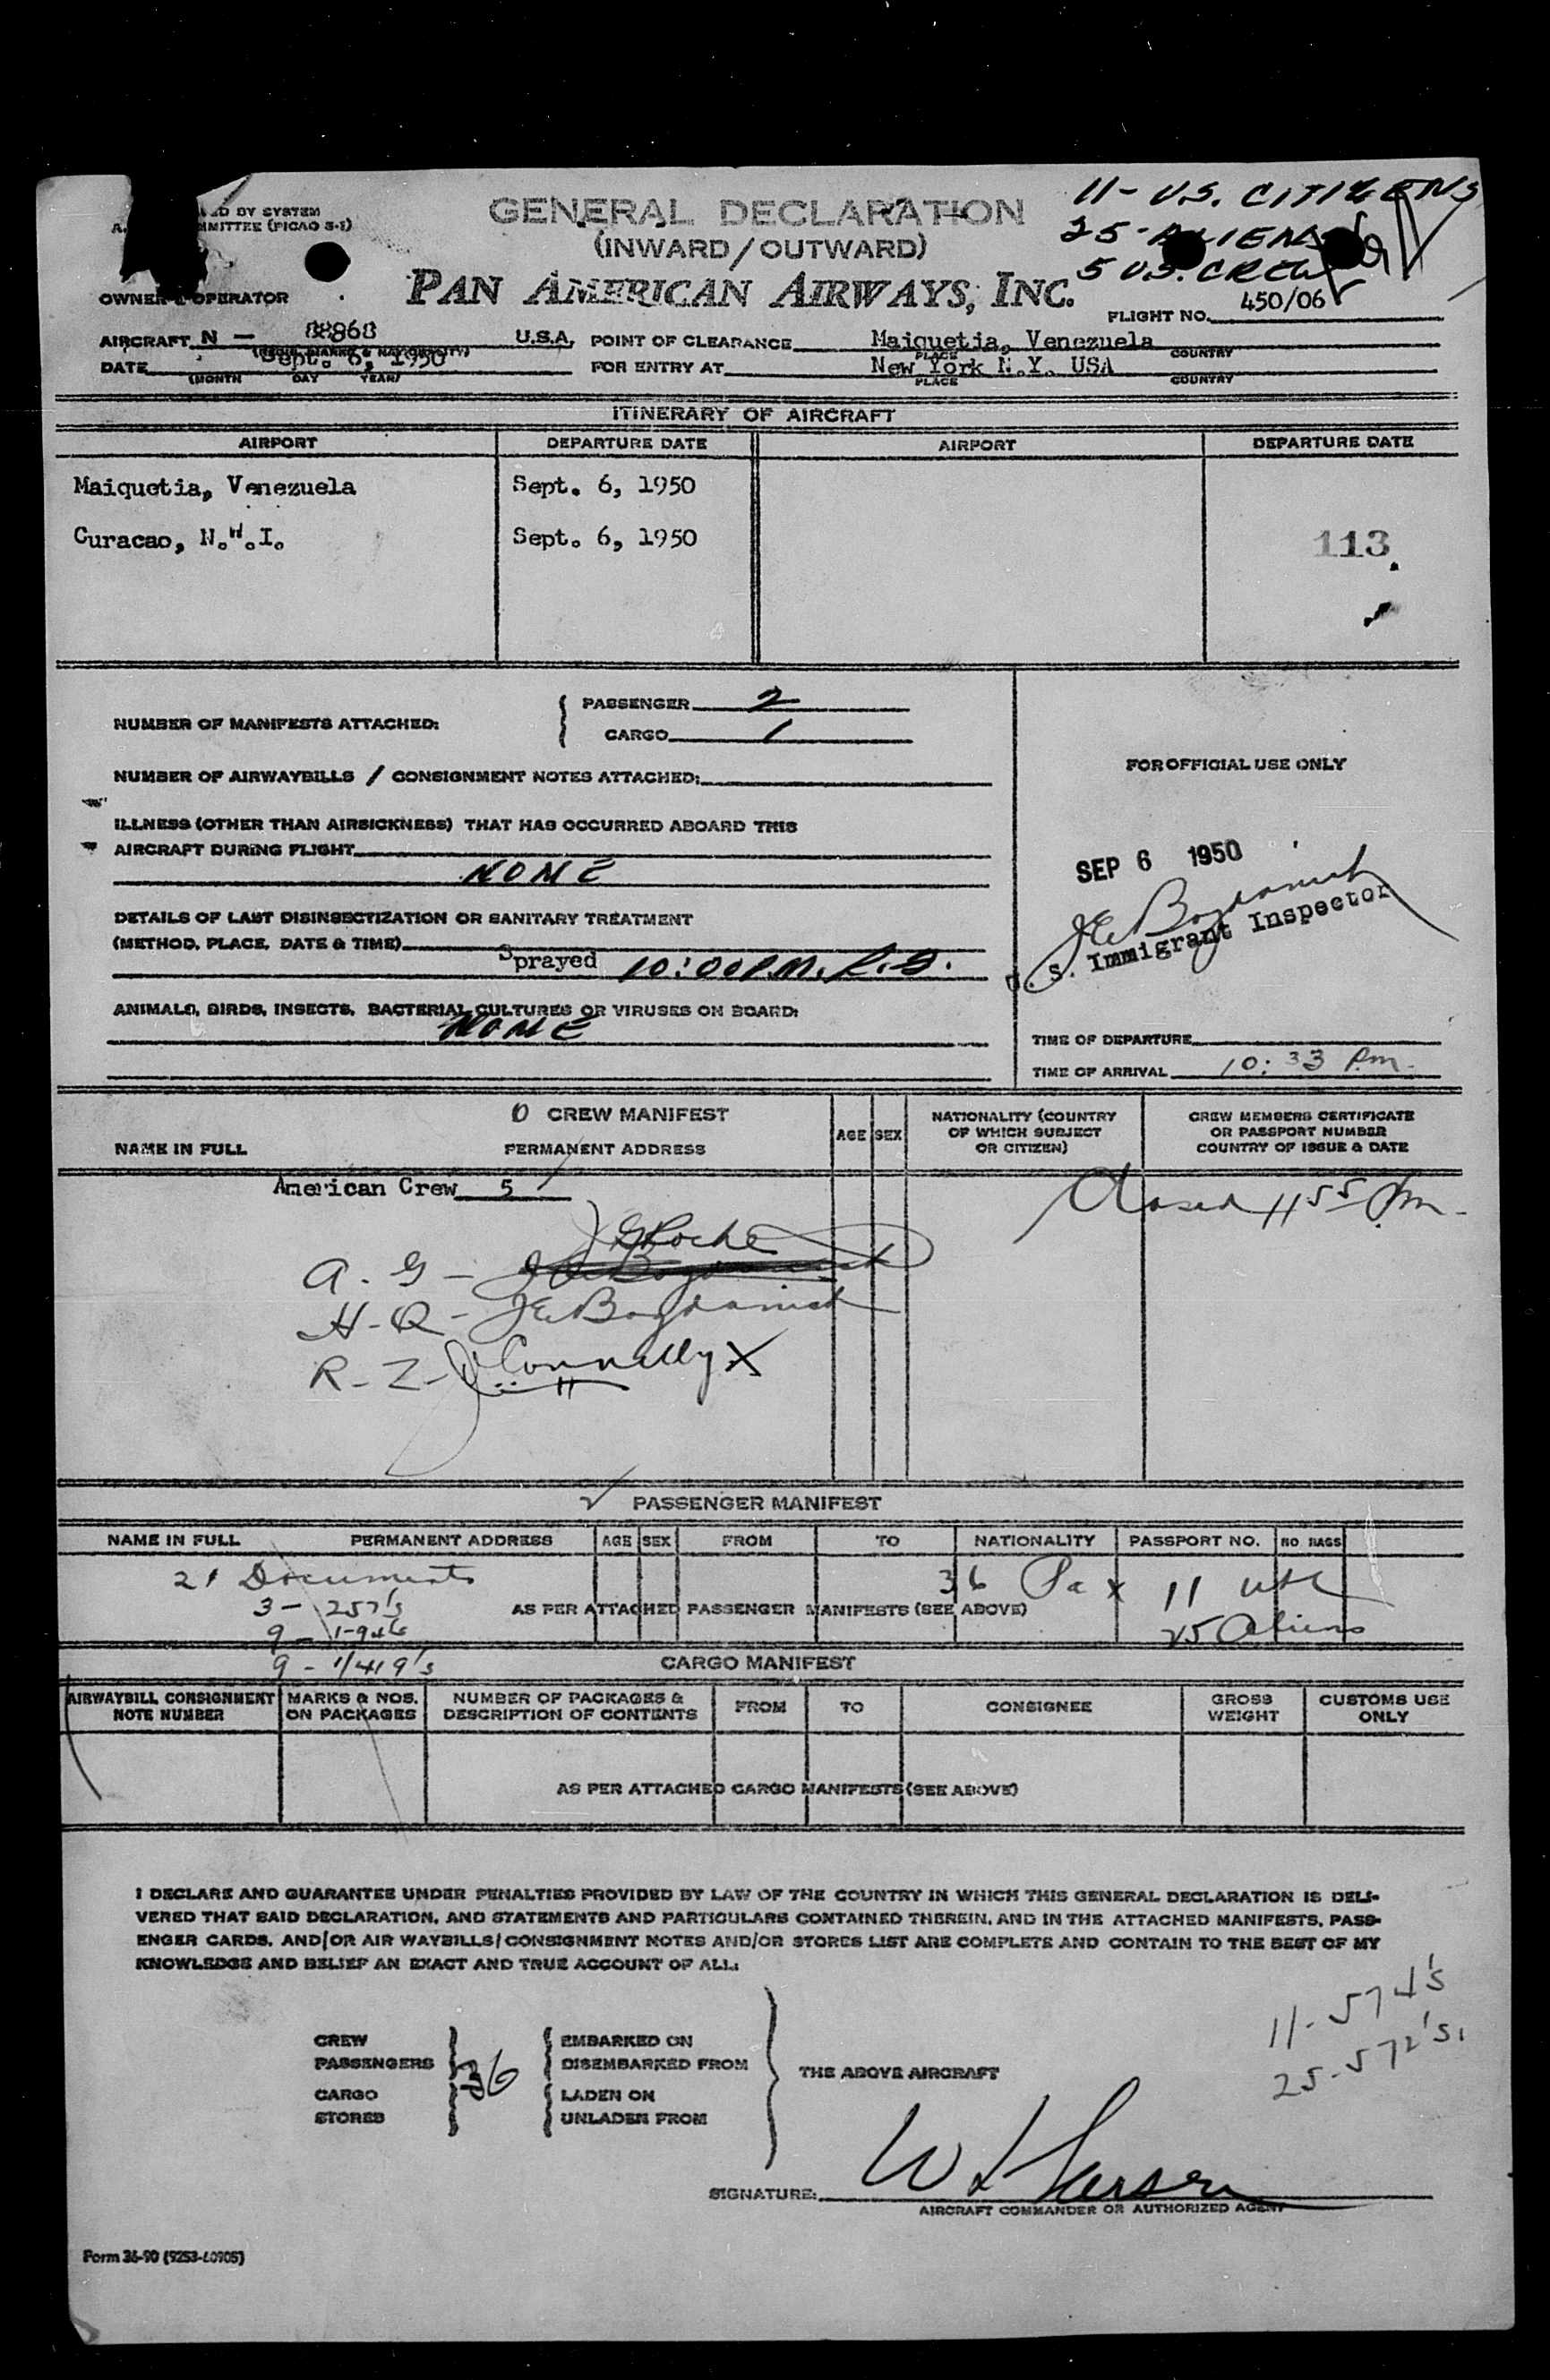 D BY SYSTEM
MMITTEE (PICAO S-1)
GENERAL DECLARATION
(INWARD/OUTWARD)
11 - U.S. CITIZENS
25 - ALIENS
5 U.S. CREW
OWNER & OPERATOR
PAN AMERICAN AIRWAYS, INC.
FLIGHT NO. 450/06
AIRCRAFT N - 88868 U.S.A. POINT OF CLEARANCE Maiquetia, Venezuela
PLACE COUNTRY
DATE Sept. 6, 1950 FOR ENTRY AT New York N.Y. USA
(MONTH DAY YEAR) PLACE COUNTRY
ITINERARY OF AIRCRAFT
AIRPORT DEPARTURE DATE AIRPORT DEPARTURE DATE
Maiquetia, Venezuela Sept. 6, 1950
Curacao, N.W.I. Sept. 6, 1950
113
NUMBER OF MANIFESTS ATTACHED: PASSENGER 2
CARGO 1
NUMBER OF AIRWAYBILLS / CONSIGNMENT NOTES ATTACHED:
FOR OFFICIAL USE ONLY
ILLNESS (OTHER THAN AIRSICKNESS) THAT HAS OCCURRED ABOARD THIS
AIRCRAFT DURING FLIGHT
NONE
SEP 6 1950
JE Bogdanich
S. Immigrant Inspector
DETAILS OF LAST DISINSECTIZATION OR SANITARY TREATMENT
(METHOD, PLACE, DATE & TIME)
Sprayed 10:00 P.M. R.G.
ANIMALS, BIRDS, INSECTS, BACTERIAL CULTURES OR VIRUSES ON BOARD:
NONE
TIME OF DEPARTURE
TIME OF ARRIVAL 10:33 P.m.
0 CREW MANIFEST
NAME IN FULL PERMANENT ADDRESS AGE SEX NATIONALITY (COUNTRY OF WHICH SUBJECT OR CITIZEN) CREW MEMBERS CERTIFICATE OR PASSPORT NUMBER COUNTRY OF ISSUE & DATE
American Crew 5
Closed 11 55 P.m.
Roche
A. G -
H - Q - JE Bogdanich
R - Z - Connelly X
PASSENGER MANIFEST
NAME IN FULL PERMANENT ADDRESS AGE SEX FROM TO NATIONALITY PASSPORT NO. NO. BAGS
21 Documents
36 Pax 11 USC
3 - 257's
AS PER ATTACHED PASSENGER MANIFESTS (SEE ABOVE)
25 Aliens
9 - I-94's
9 - 1/419's
CARGO MANIFEST
AIRWAYBILL CONSIGNMENT NOTE NUMBER MARKS & NOS. ON PACKAGES NUMBER OF PACKAGES & DESCRIPTION OF CONTENTS FROM TO CONSIGNEE GROSS WEIGHT CUSTOMS USE ONLY
AS PER ATTACHED CARGO MANIFESTS (SEE ABOVE)
I DECLARE AND GUARANTEE UNDER PENALTIES PROVIDED BY LAW OF THE COUNTRY IN WHICH THIS GENERAL DECLARATION IS DELI-
VERED THAT SAID DECLARATION, AND STATEMENTS AND PARTICULARS CONTAINED THEREIN, AND IN THE ATTACHED MANIFESTS, PASS-
ENGER CARDS, AND/OR AIR WAYBILLS/CONSIGNMENT NOTES AND/OR STORES LIST ARE COMPLETE AND CONTAIN TO THE BEST OF MY
KNOWLEDGE AND BELIEF AN EXACT AND TRUE ACCOUNT OF ALL:
11 - 574's
25 - 572's.
CREW EMBARKED ON
PASSENGERS 36 DISEMBARKED FROM
THE ABOVE AIRCRAFT
CARGO LADEN ON
STORES UNLADEN FROM
SIGNATURE: W Larsen
AIRCRAFT COMMANDER OR AUTHORIZED AGENT
Form 36-90 (9253-60905)